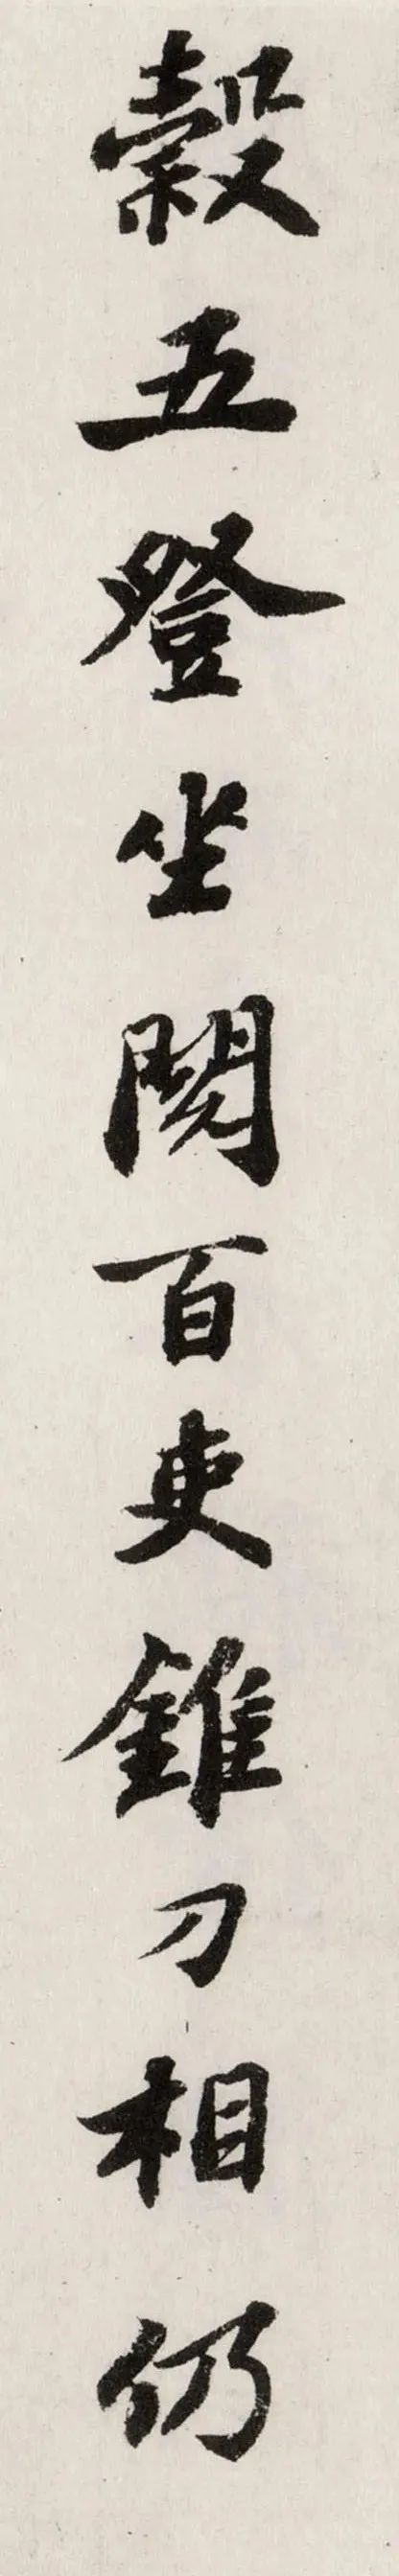 穀五登坐閱百吏錐刀相仍